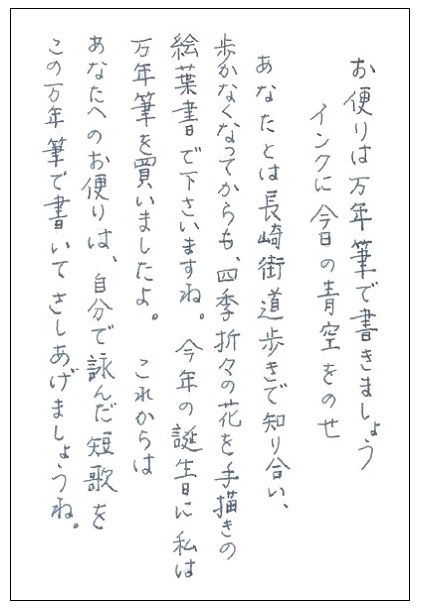 お便りは万年筆で書きましょう
インクに今日の青空をのせ
あなたとは長崎街道歩きで知り合い、
歩かなくなってからも、四季折々の花を手描きの
絵葉書で下さいますね。今年の誕生日に私は
万年筆を買いましたよ。これからは
あなたへのお便りは、自分で詠んだ短歌を
この万年筆で書いてさしあげましょうね。